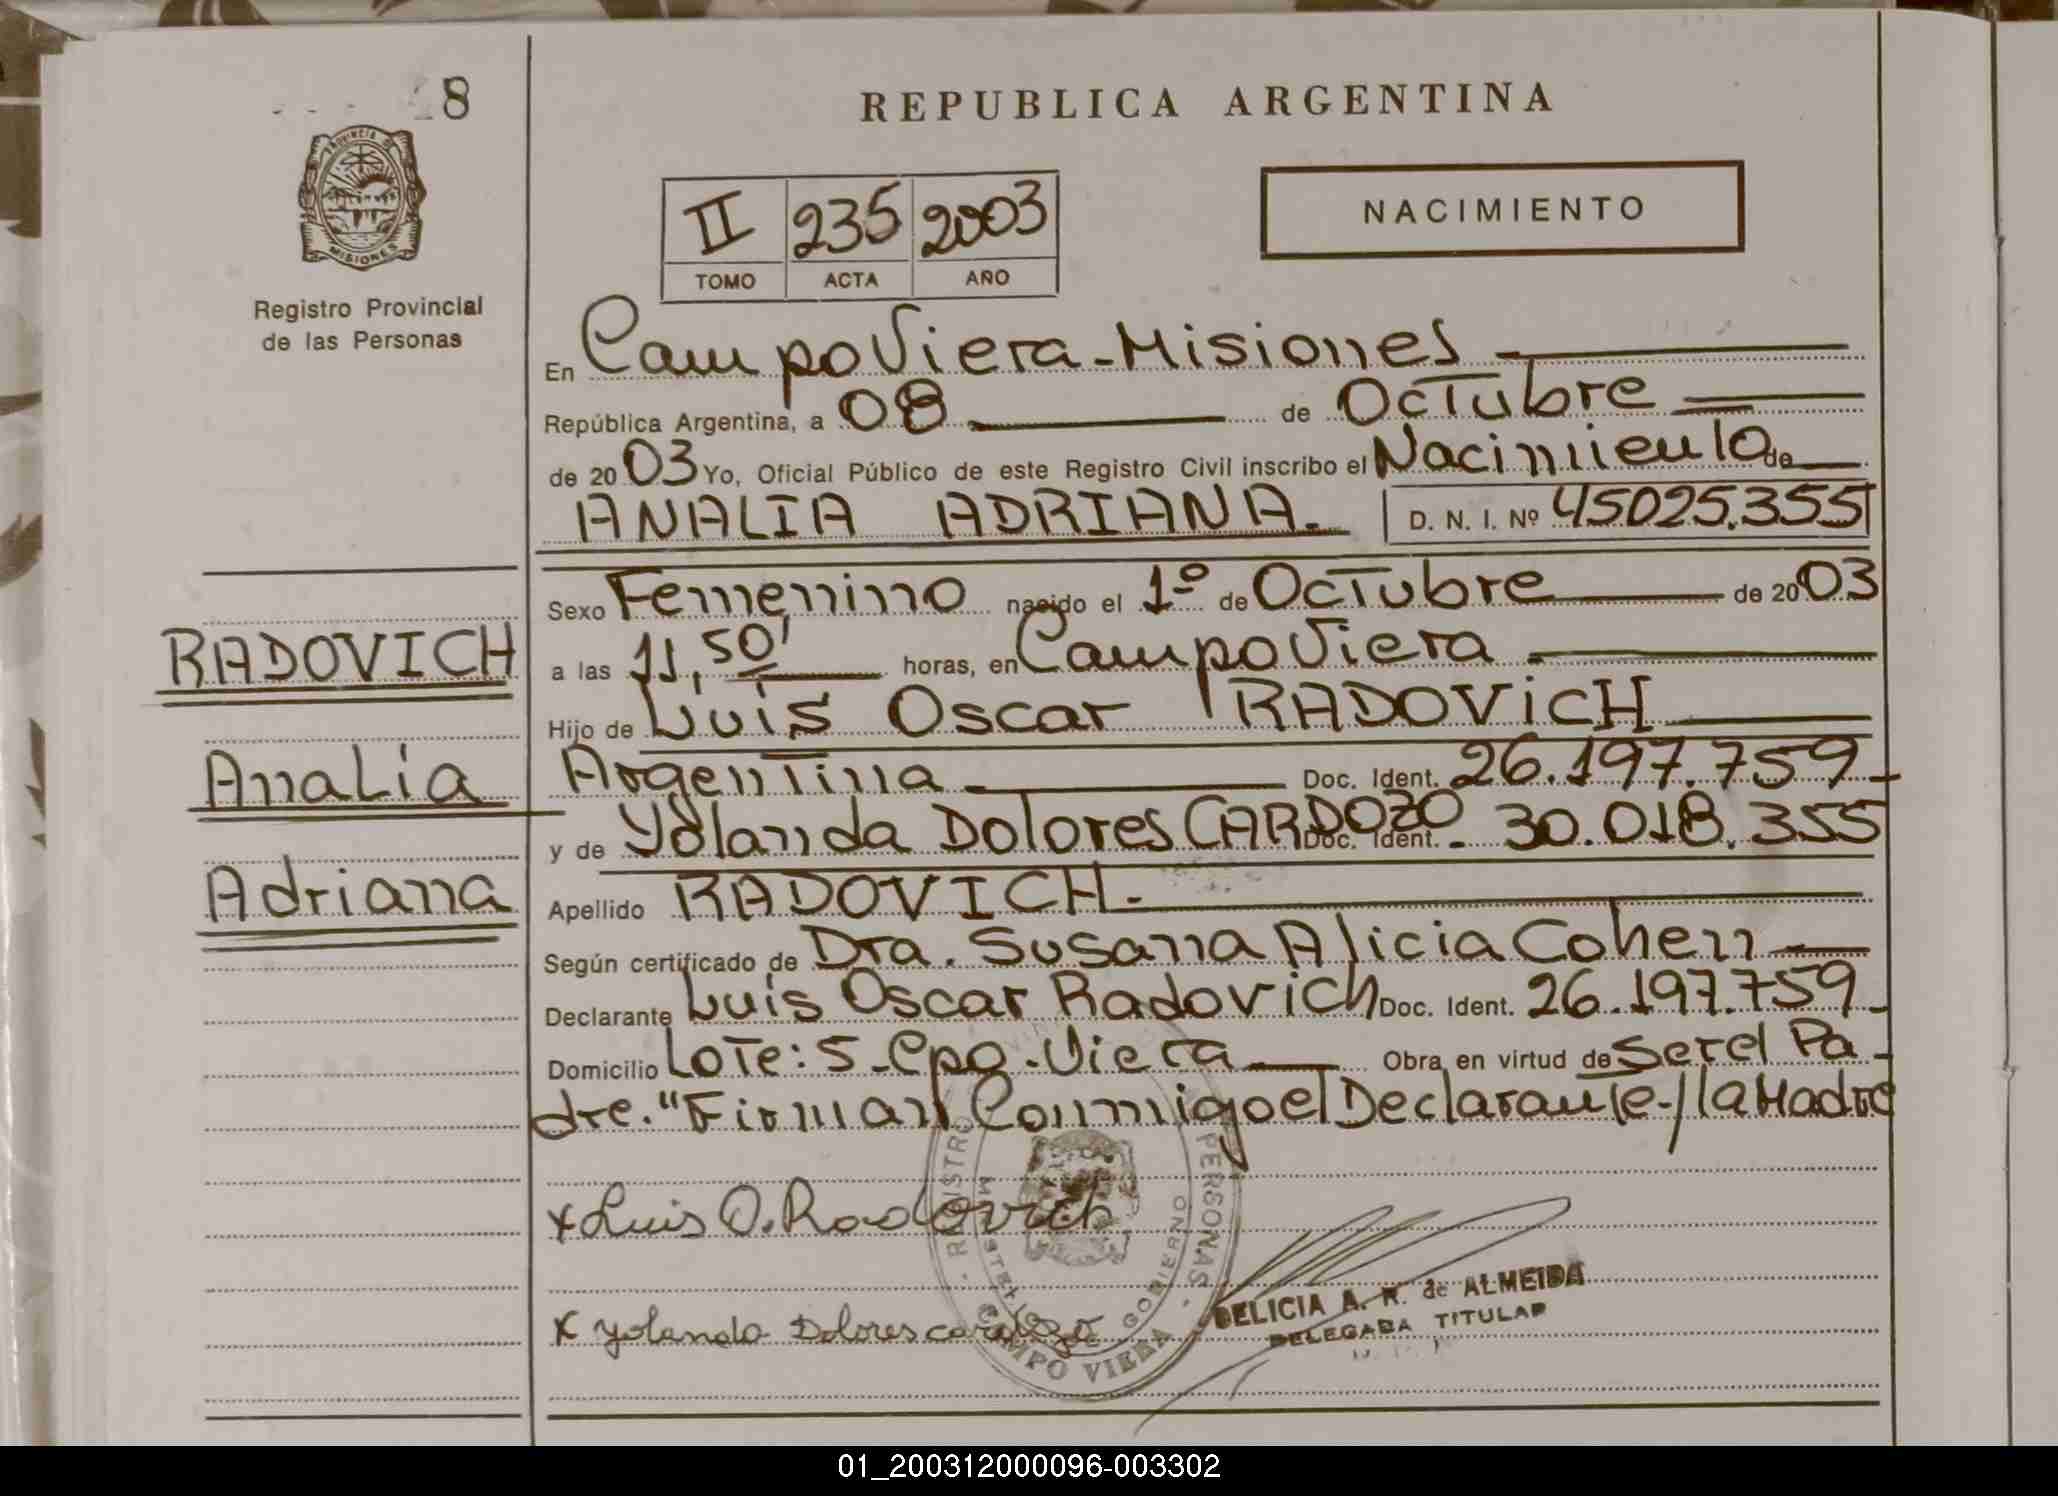 8
REPUBLICA ARGENTINA
PROVINCIA DE
MISIONES
Registro Provincial
de las Personas
II 235 2003
TOMO ACTA AÑO
NACIMIENTO
En Campo Viera - Misiones
República Argentina, a 08 de Octubre
de 2003 Yo, Oficial Público de este Registro Civil inscribo el Nacimiento de
ANALIA ADRIANA. D. N. I. Nº 45025.355
Sexo Femenino nacido el 1º de Octubre de 2003
a las 11,50' horas, en Campo Viera
Hijo de Luis Oscar RADOVICH
Argentina Doc. Ident. 26.197.759
y de Yolanda Dolores CARDOZO Doc. Ident. 30.018.355
Apellido RADOVICH.
Según certificado de Dra. Susana Alicia Cohen
Declarante Luis Oscar Radovich Doc. Ident. 26.197.759
Domicilio Lote: 5 - Cpo. Viera Obra en virtud de Ser el Pa-
dre. "Firman Conmigo el Declarante / la Madre
RADOVICH
Analia
Adriana
x Luis O. Radovich
x Yolanda Dolores cardozo
REGISTRO PERSONAS
GOBIERNO
CAMPO VIERA
DELICIA A. R. de ALMEIDA
DELEGADA TITULAR
01_200312000096-003302